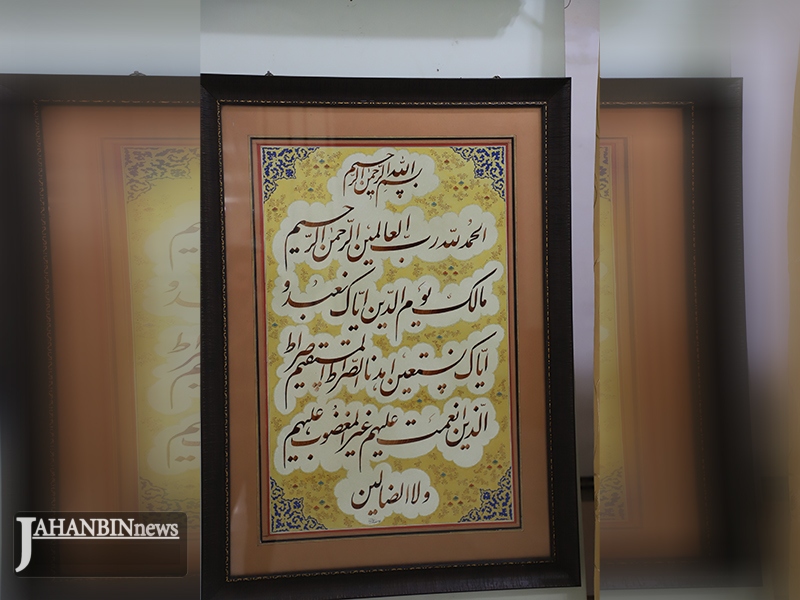 بسم الله الرحمن الرحیم
الحمد لله رب العالمین الرحمن الرحیم
مالک یوم الدین ایاک نعبد و
ایاک نستعین اهدنا الصراط المستقیم صراط
الذین انعمت علیهم غیر المغضوب علیهم
ولا الضالین
JAHANBINnews